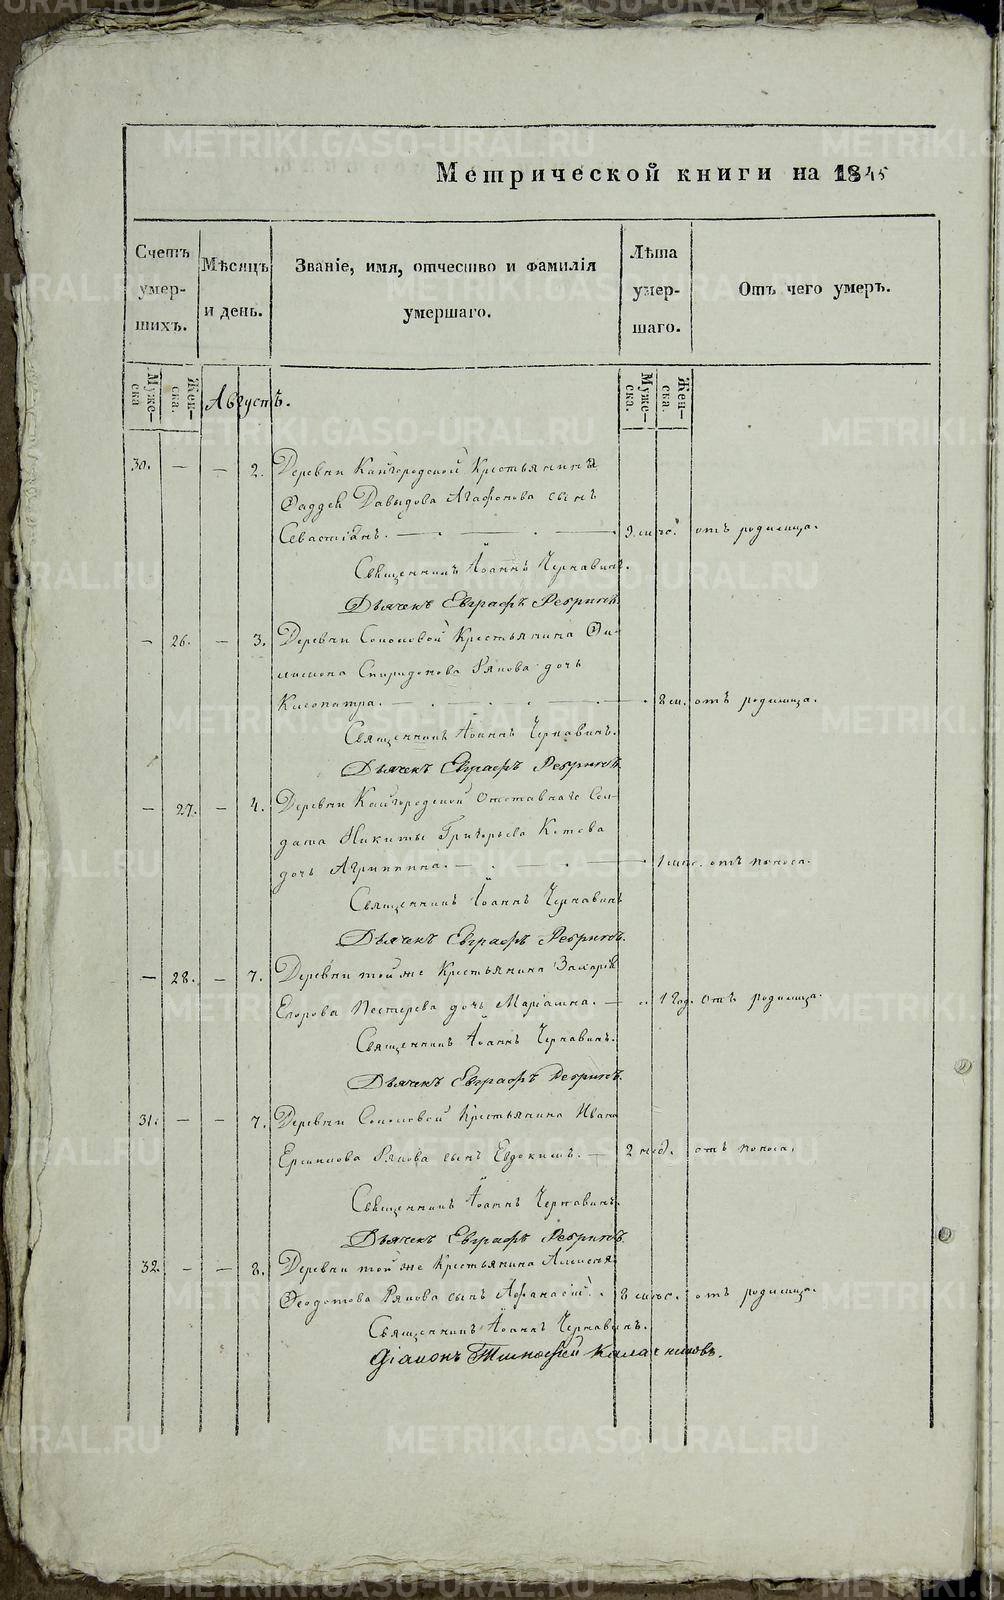 Метрической книги на 1845
Счетъ умер- шихъ.
Мѣсяцъ и день.
Званіе, имя, отчество и фамилія умершаго.
Лѣта умер- шаго.
Отъ чего умеръ.
Муже- ска
Жен- ска.
Августъ.
Муже- ска.
Жен- ска.
30. — — 2. Деревни Кайгородской Крестьянина
Фаддея Давыдова Агафонова сынъ
Севастіанъ. — 9. мѣс. отъ родимца.
Священникъ Іоаннъ Чернавинъ.
Дьячекъ Евграфъ Ребринъ.
— 26. — 3. Деревни Соколовой Крестьянина Фи-
лимона Спиридонова Рякова дочь
Клеопатра. — 8 м. отъ родимца.
Священникъ Іоаннъ Чернавинъ.
Дьячекъ Евграфъ
— 27. — 4. Деревни Кайгородской Отставнаго Сол-
дата Никиты Григорьева Котова
дочь Агрипина. — 1 мѣс. отъ поноса.
Священникъ Іоаннъ Чернавинъ
Дьячекъ Евграфъ
— 28. — 7. Деревни той же Крестьянина Захарія
Егорова Пестерева дочь Маріамна. — 1 год. отъ родимца.
Священникъ Іоаннъ Чернавинъ.
Дьячекъ Евграфъ
31. — — 7. Деревни Соколовой Крестьянина Ивана
Рякова сынъ Евдокимъ. — 2 нед. отъ поноса.
Священникъ Іоаннъ Чернавинъ.
Дьячекъ Евграфъ
32. — — 8. Деревни той же Крестьянина Алексея
Феодотова Рякова сынъ Афанасій. 8 мѣс. отъ родимца.
Священникъ Іоаннъ Чернавинъ.
Діаконъ Тимофей Калашниковъ.
METRIKI.GASO-URAL.RU